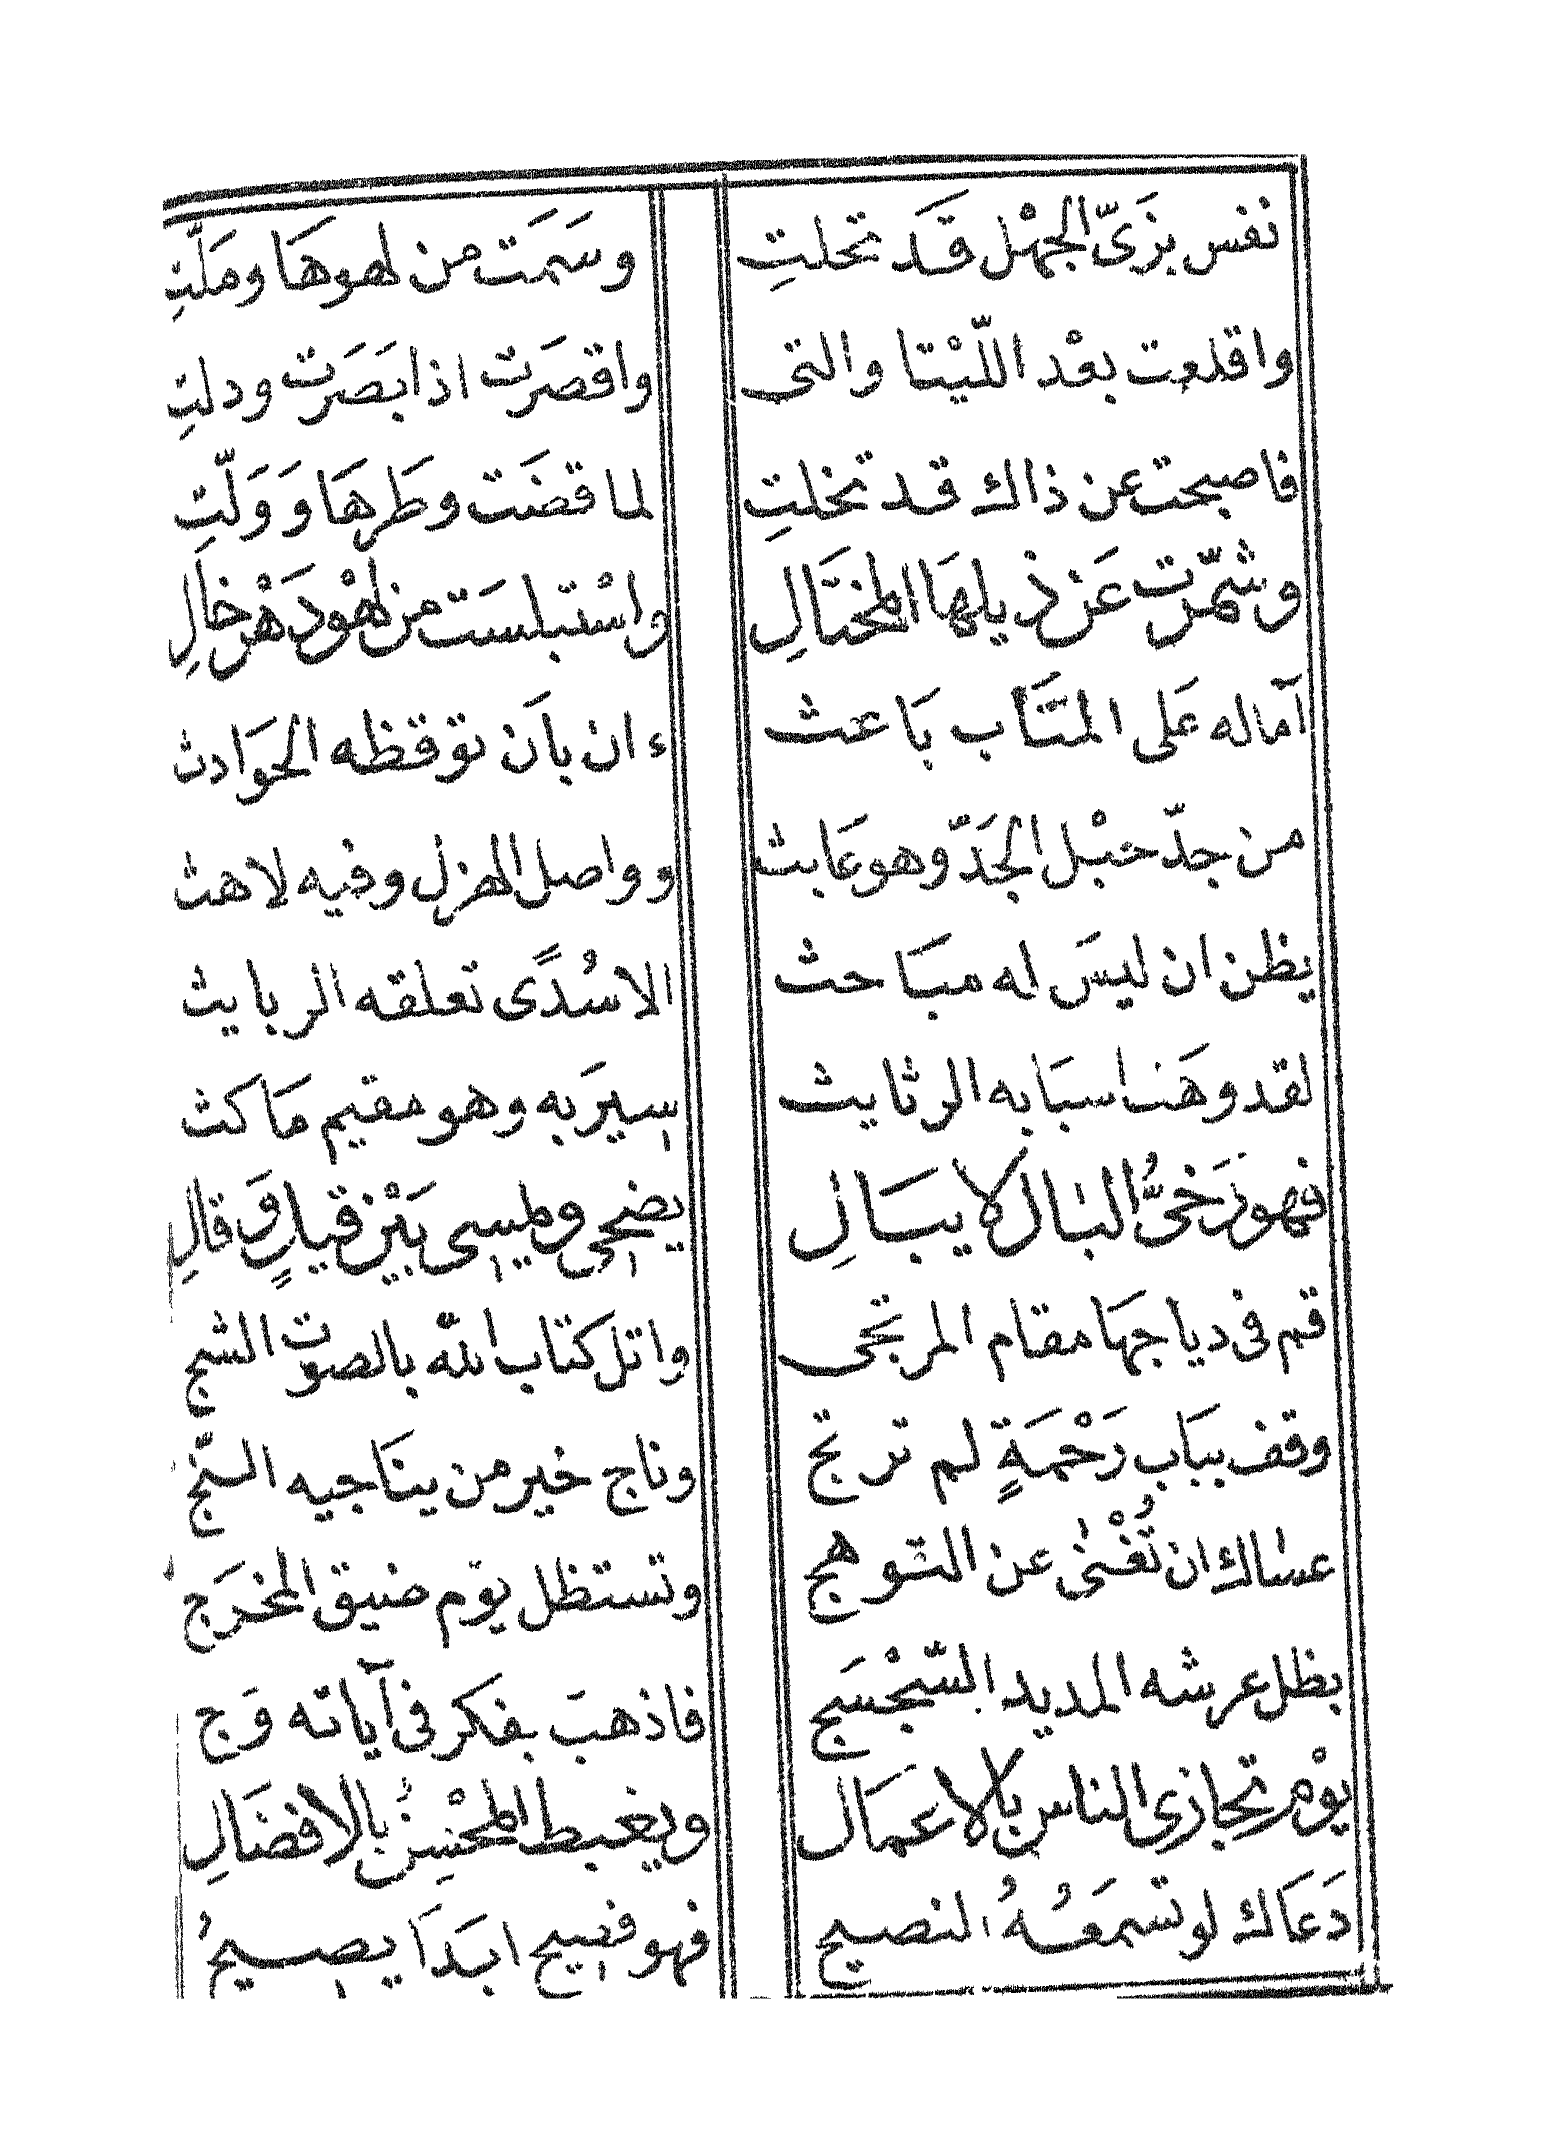 نفس بزَىّ الجهْل قَد تحلتِ وسَمَت من لهوهَا ومَلّتِ
واقلعت بعْد اللّيْتا والتى واقصَرت اذا بَصَرت ودلتِ
فاصبحت عن ذاك قد تخلتِ لما قضَت وطَرهَا وَ وَلّتِ
وشمّرت عَن ذيلهَا المختَالِ واسْتبلسَت من لهْو دَهْر خالِ
آماله عَلى المتَاب بَاعث ء ان بأن توقظه الحوَادث
من جدّ حبْل الجَدّ وهو عَابث وواصل الهزل وفيه لاهث
يظن ان ليسَ له مبَاحث الا سُدًى تعلقه الربايث
لقد وهَنا سبَابه الرثايث اسيرَ به وهو مقيم مَاكث
فهو رَخىُّ البال لا يبَالِ يضحى ويمسى بَيْن قيلٍ وَقالِ
قم فى دياجهَا مقام المرتجى واتل كتاب الله بالصوت الشج
وقف ببَاب رَحْمَةٍ لم ترتج وناج خير من ينَاجيه النّج
عساك ان تُغْنى عن التوهج وتستظل يوم ضيق المخرَج
بظل عرشه المديد السّجْسَج فاذهبَ بفكر فى آياته وَج
يوْم تجازى الناس بالاعمَال ويغبط المحْسِن بالافضَالِ
دَعَاك لو تسمَعُهُ النصيح فهو فصيح ابَدَا يصيحُ